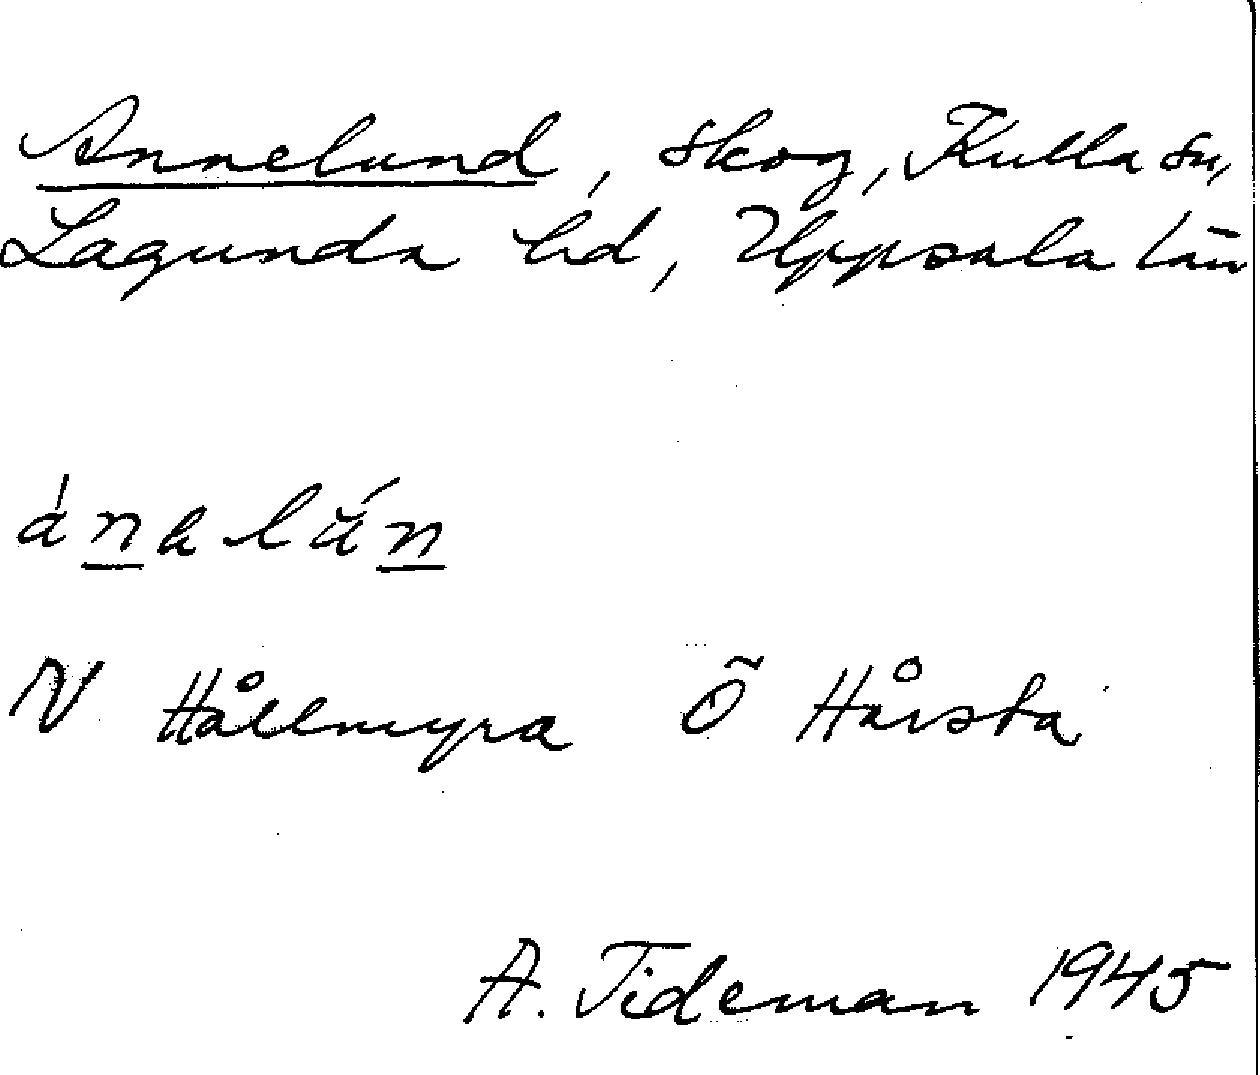 Annelund, skog, Kulla sn,
Lagunda hd, Uppsala län
N Hållmyra Ö Hårsta
A. Tideman 1945